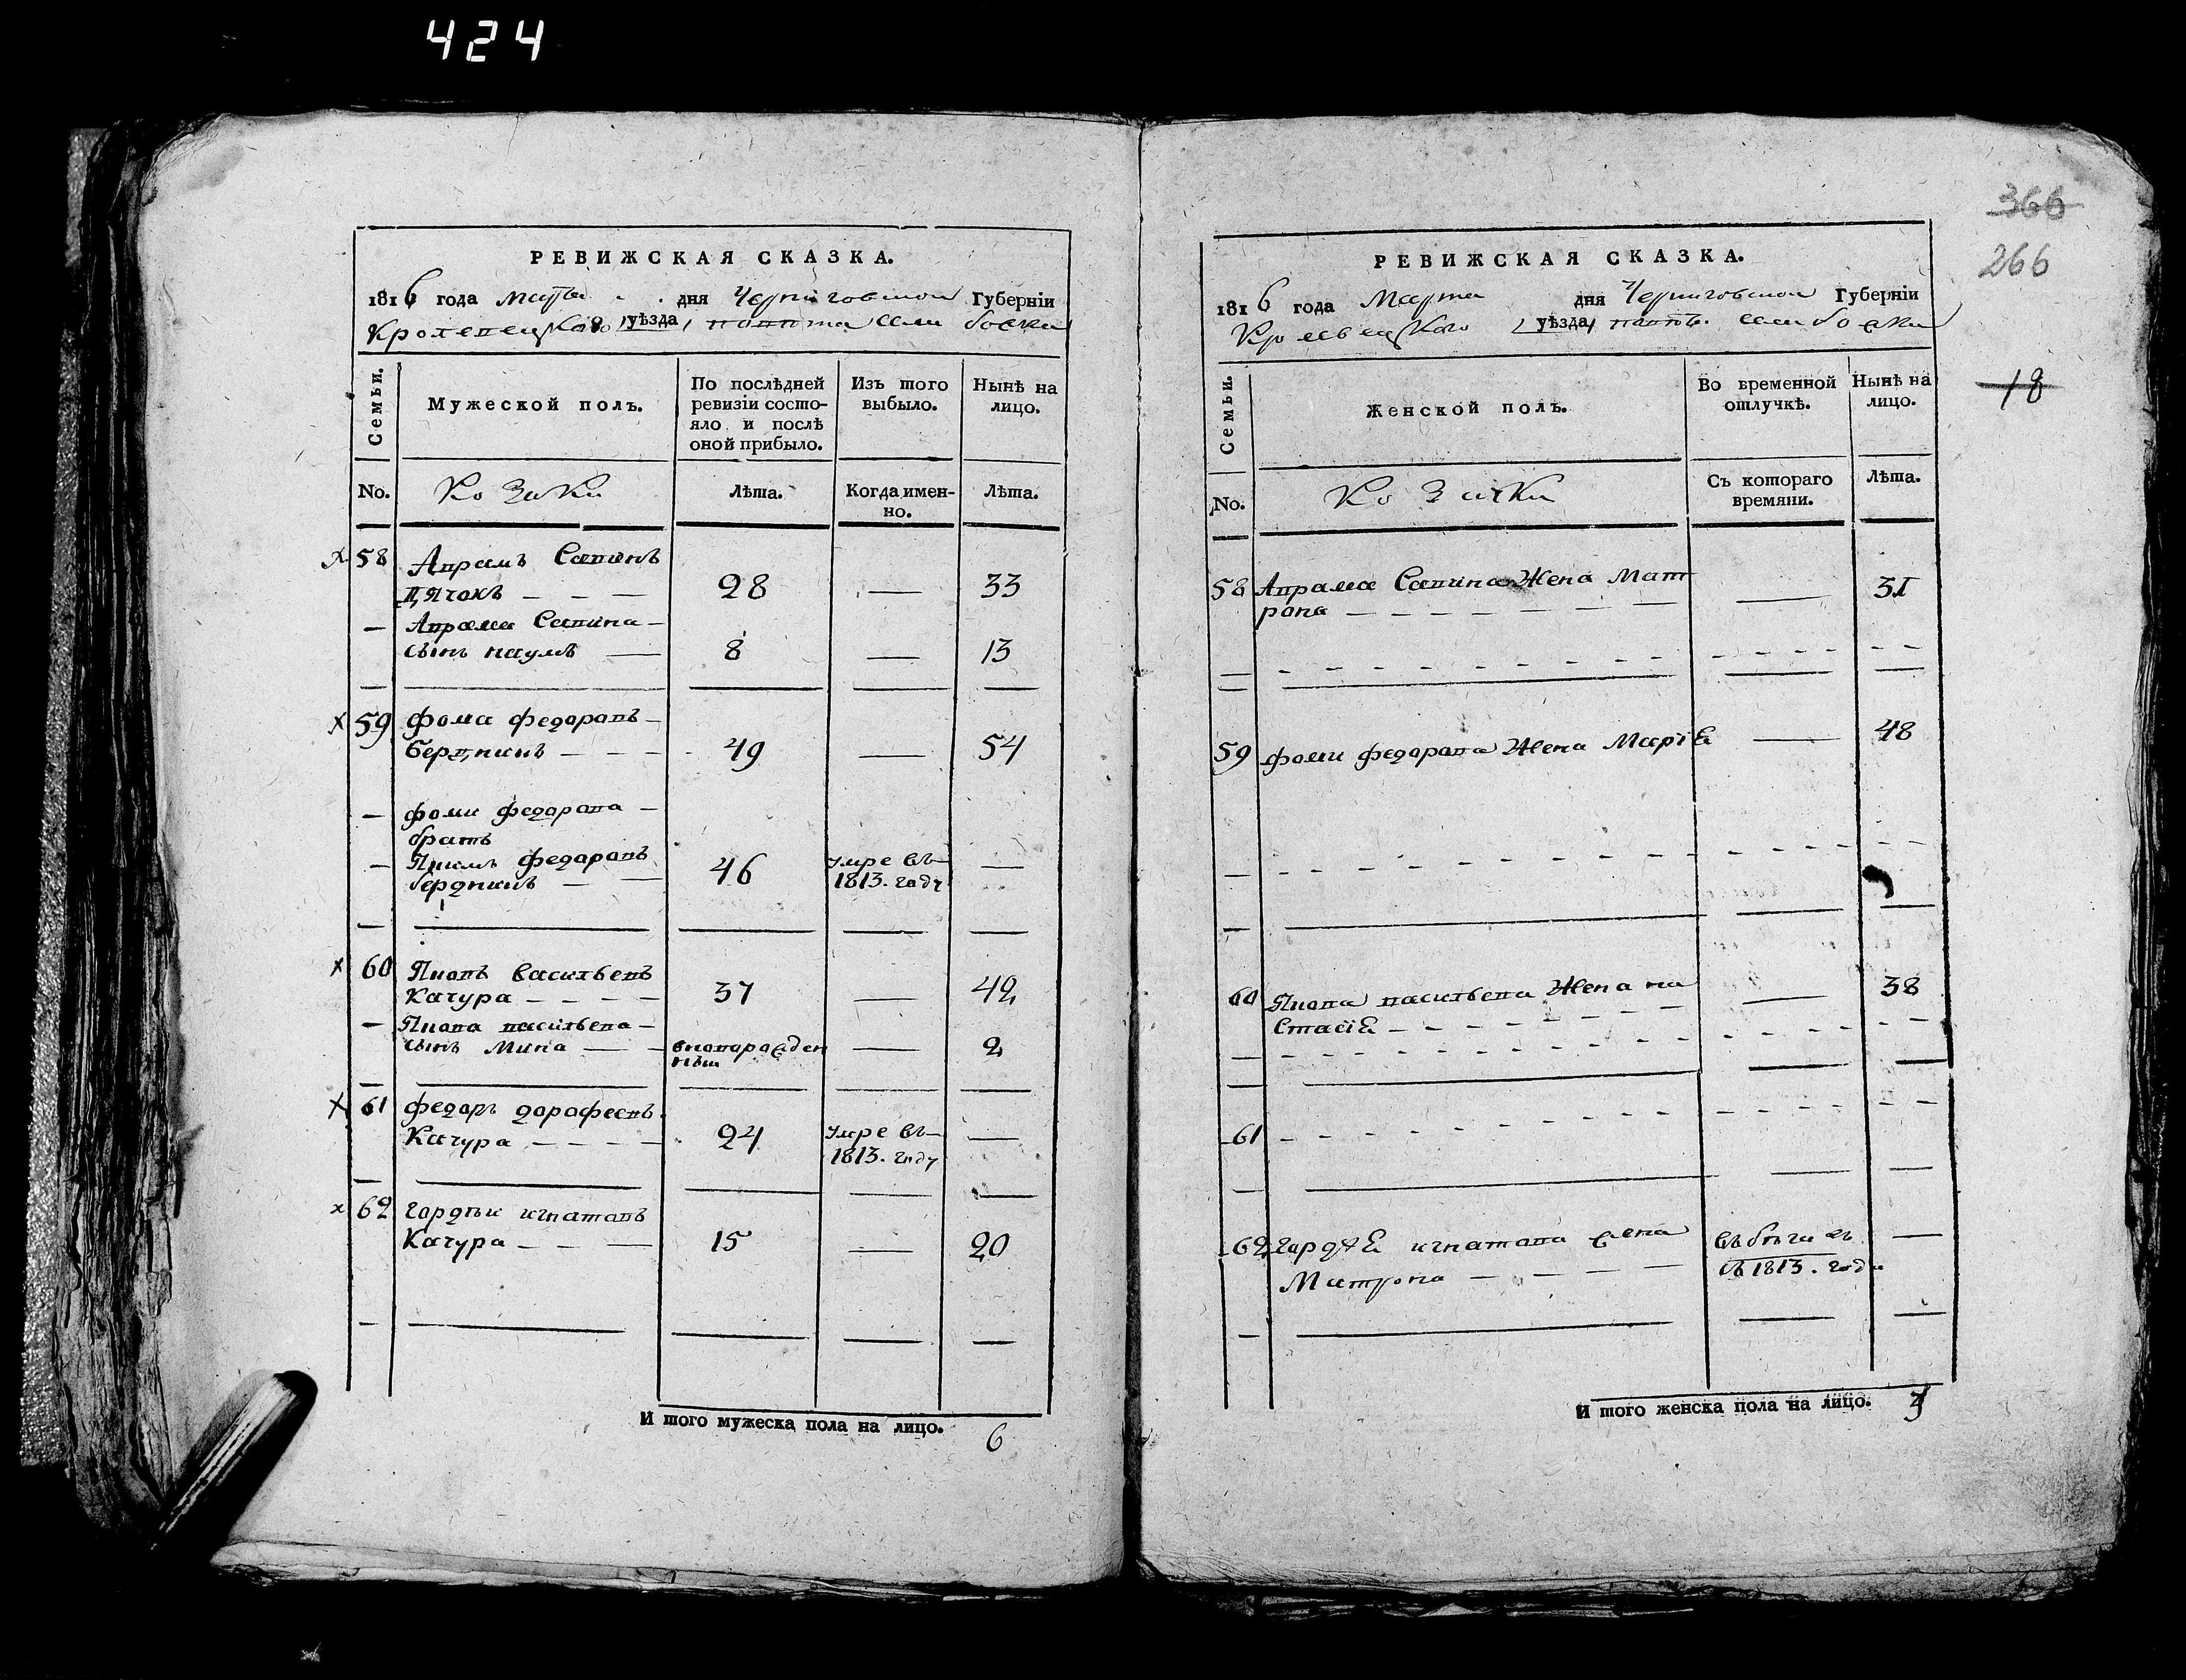 424
РЕВИЖСКАЯ СКАЗКА.
1816 года Марта дня Черниговской Губерніи
уѣзда
Семьи.
Мужеской полъ.
По послѣдней ревизіи состо-
яло и послѣ
оной прибыло.
Изъ того
выбыло.
Нынѣ на
лицо.
No.
Козаки
Лѣта.
Когда имен-
но.
Лѣта.
58 Апрамъ Сапинъ
28 — 33
Апрама Сапина
сынъ наумъ — 8 — 13
59 фома федарапъ
49 — 54
фоми федарапа
братъ
федарапъ
бердникъ — 46 умре въ 1813. году —
60 Пиопъ васильепъ
Качура — 37 — 42
Пиопа пасильепа
сынъ Мина — 2
61 федаръ дарафеепъ
Качура — 24 умре въ 1813. году —
62 гордѣи игнатапъ
Качура — 15 — 20
И того мужеска пола на лицо. 6
366
266
18
РЕВИЖСКАЯ СКАЗКА.
1816 года Марта дня Черниговской Губерніи
Кролевецкого уѣзда
Семьи.
Женской полъ.
Во временной
отлучкѣ.
Нынѣ на
лицо.
No.
Козачки
Съ котораго
времяни.
Лѣта.
58 Апрама Сапина Жена Мат
рона — 31
59 фоми федарапа Жена Маріѣ — 48
60 Пиопа пасильепа Жена на
стасіѣ — 38
61
62 игнатапа жена
Матрона — въ бѣгахъ
съ 1813. года —
И того женска пола на лицо. 3